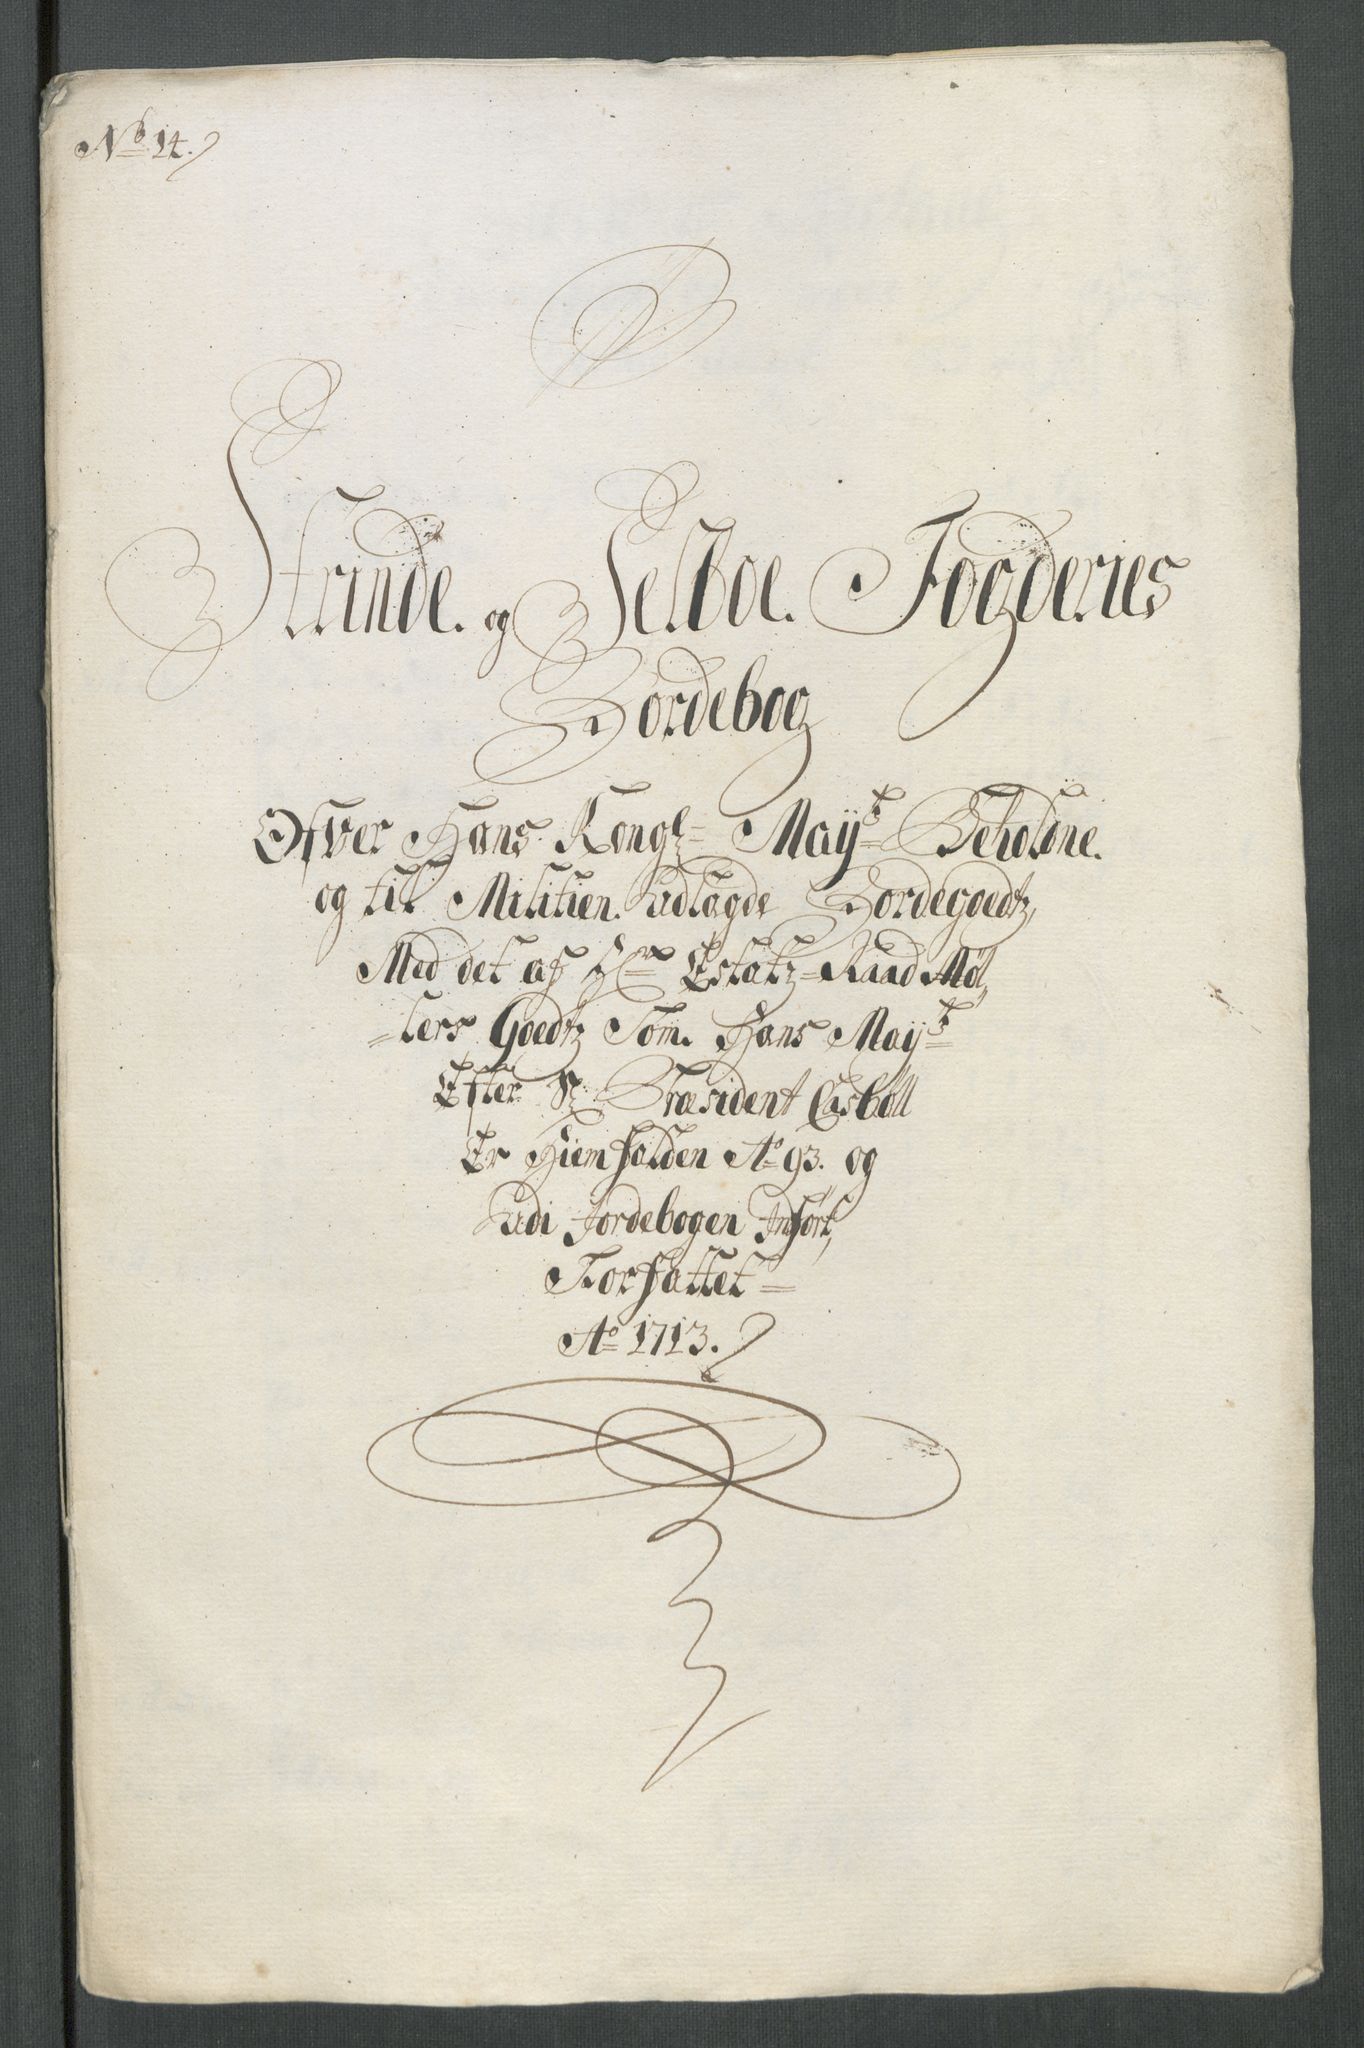 No 14.
Strinde. og Selboe. Fogderies
Jordebog
Ofver Hans Kongl: May:ts Beholdne.
og til Militien. Udlagde Jordegoedtz,
Med det af Hr: Estatz-Raad Møl,
=lers Goedtz Som. Hans May:ts
Efter Sl: Præsident Casboll
Er Hiemfalden Ao 93. og
Udi Jordebogen Indført,
Forfattet=
Ao 1713.